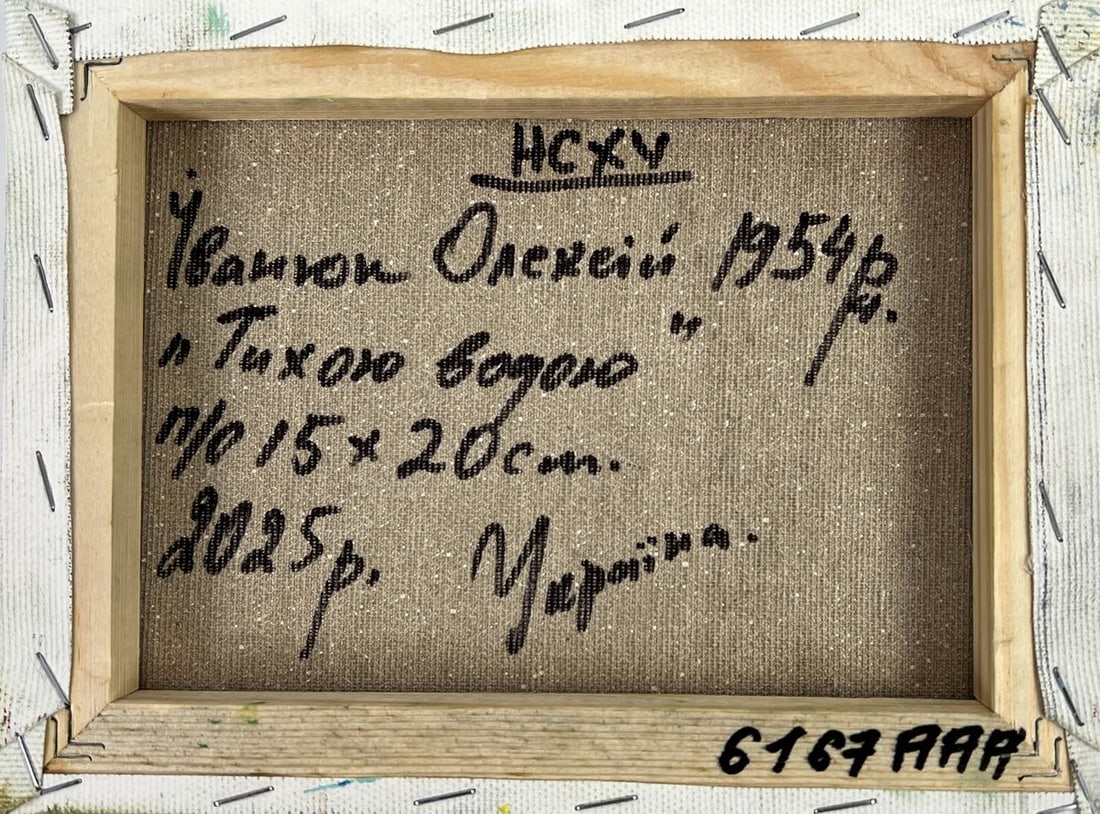 НСХУ
Іванюк Олексій 1954р.н.
„Тихою водою"
п/о 15×20 cm.
2025р. Україна.
6167 AAA